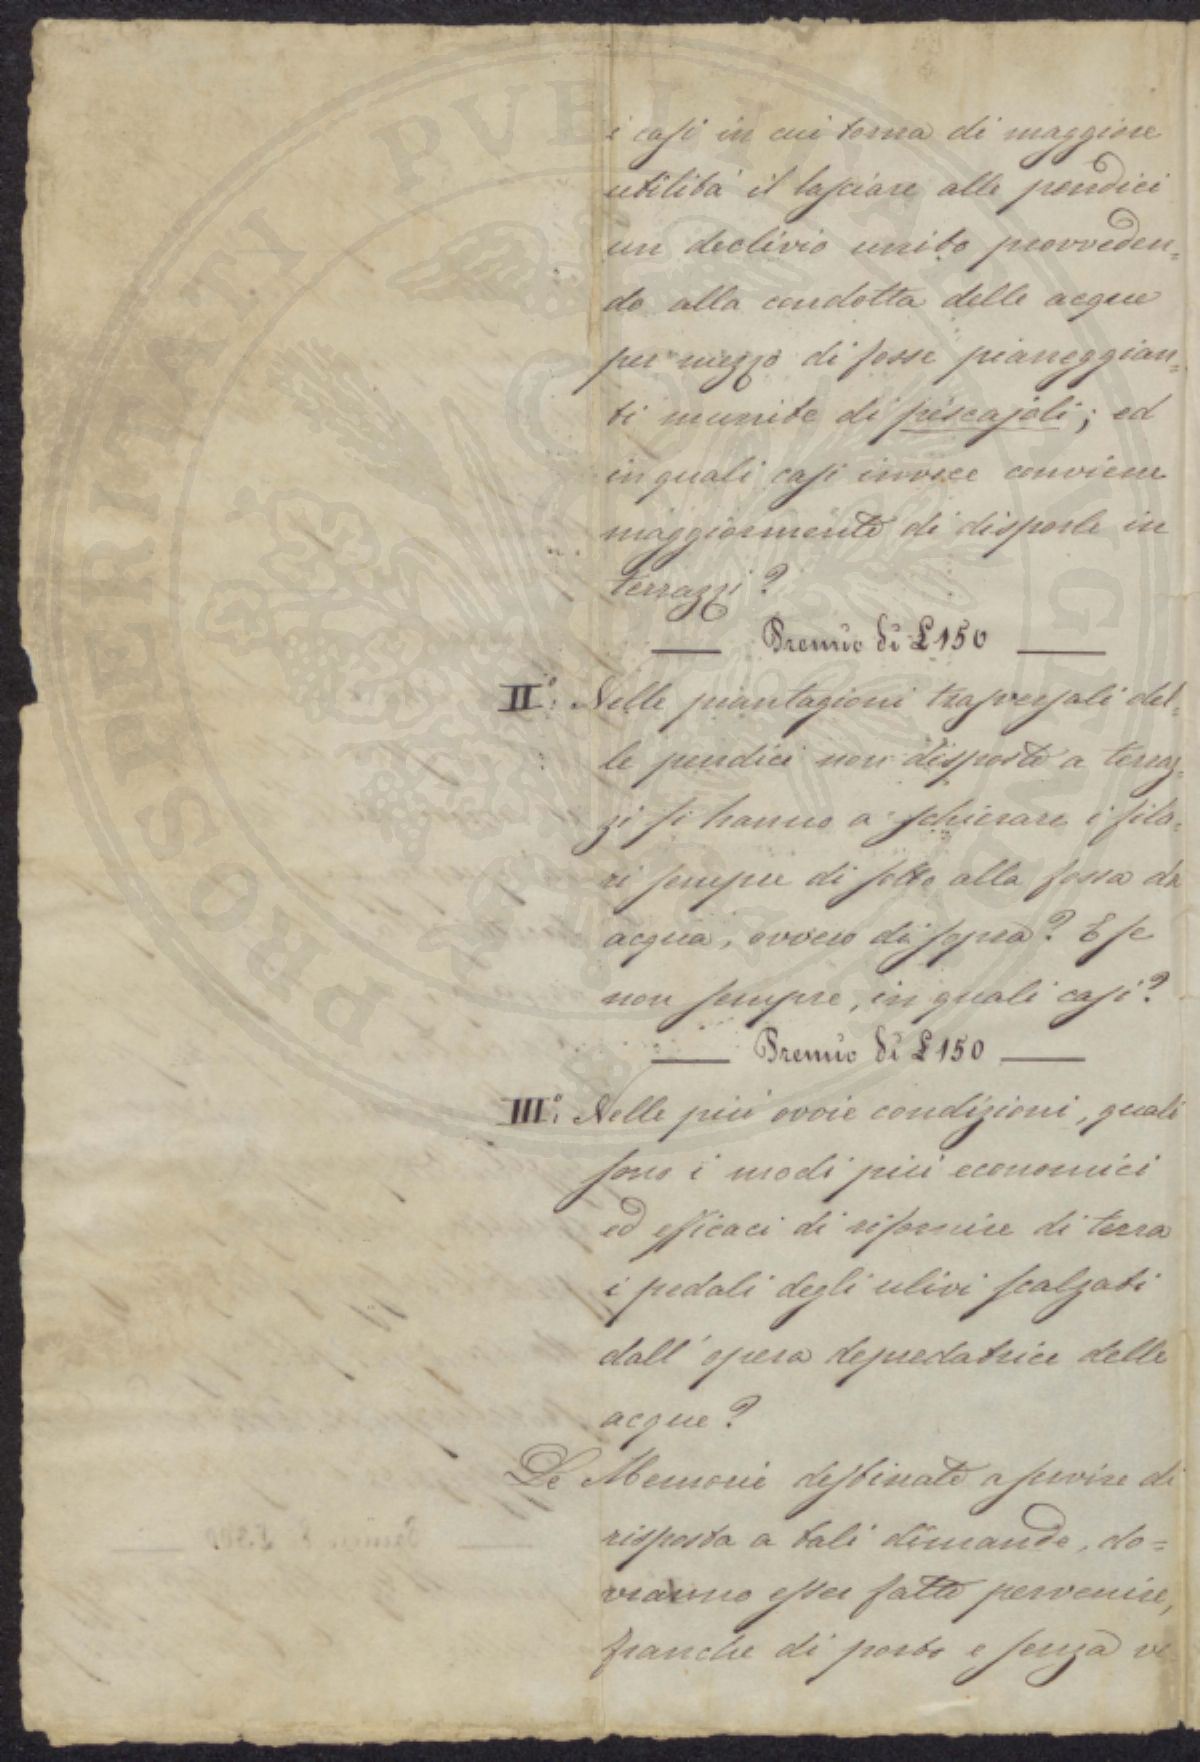 i casi in cui torna di maggiore
utilità il lasciare alle pendici
un declivio unito provveden=
do alla condotta delle acque
per mezzo di fosse pianeggian=
ti munite di pescajoli; ed
in quali casi invece conviene
maggiormente di disporle in
terrazzi?
— Premio di £ 150 —
II.° Nelle piantagioni trasversali del=
le pendici non disposte a terraz=
zi si hanno a schierare i fila=
ri sempre di sotto alla fossa da
acqua, ovvero di sopra? E se
non sempre, in quali casi?
— Premio di £ 150 —
III.° Nelle più ovvie condizioni, quali
sono i modi più economici
ed efficaci di rifornire di terra
i pedali degli ulivi scalzati
dall'opera depredatrice delle
acque?
Le Memorie destinate a servire di
risposta a tali dimande, do=
vranno esser fatte pervenire,
franche di porto e senza ve
PROSPERITATI PUBLICAE AUGENDAE